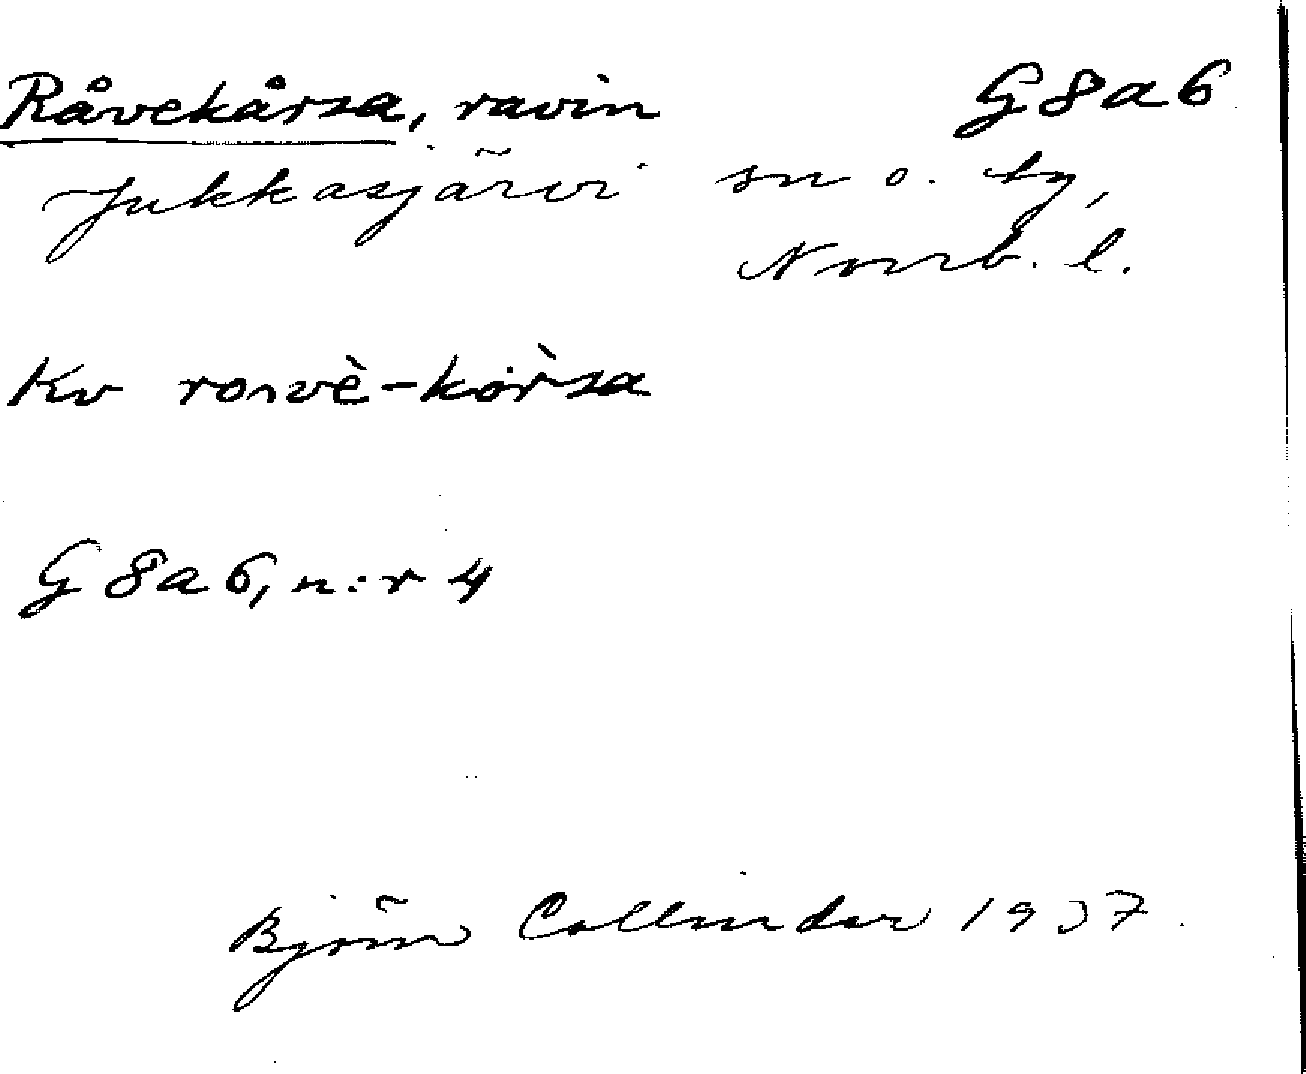 Råvekårsa, ravin G8a6
Jukkasjärvi sn o. tg,
Norrb. l.
Kv rovvè-kòr̀sa
G8a6, n:r 4
Björn Collinder 1937